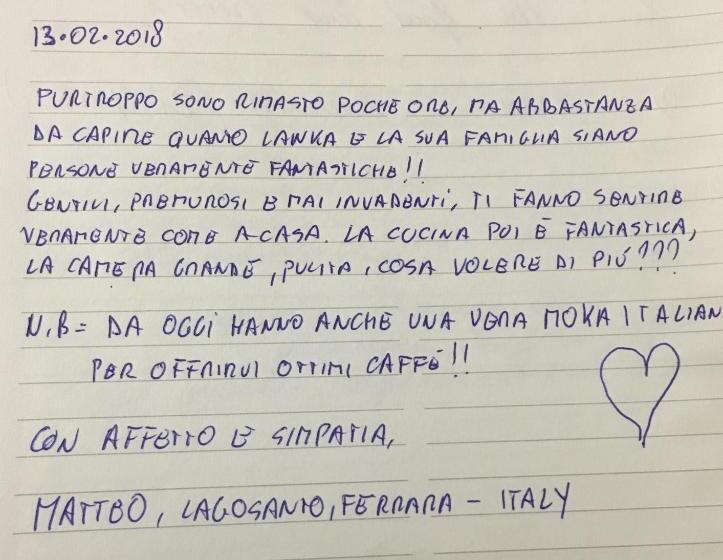 13.02.2018
PURTROPPO SONO RIMASTO POCHE ORE, MA ABBASTANZA
DA CAPIRE QUANTO LANKA E LA SUA FAMIGLIA SIANO
PERSONE VERAMENTE FANTASTICHE!!
GENTILI, PREMUROSI E MAI INVADENTI, TI FANNO SENTIRE
VERAMENTE COME A CASA. LA CUCINA POI È FANTASTICA,
LA CAMERA GRANDE, PULITA, COSA VOLERE DI PIÚ???
N.B= DA OGGI HANNO ANCHE UNA VERA MOKA ITALIAN
PER OFFRIRVI OTTIMI CAFFÉ!!
CON AFFETTO E SIMPATIA,
MATTEO, LAGOSANTO, FERRARA - ITALY